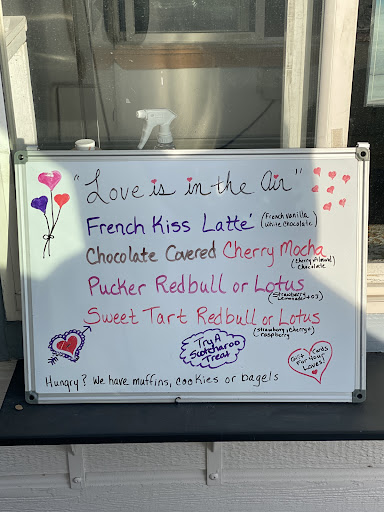 "Love is in the Air"
French Kiss Latté (French Vanilla
White Chocolate)
Chocolate Covered Cherry Mocha
(Cherry + Almond
Chocolate)
Pucker Redbull or Lotus
(Strawberry
Lemonade + OJ)
Sweet Tart Redbull or Lotus
(Strawberry, Cherry +
raspberry)
Try A
Scotcharoo
Treat
Gift Cards
For Your
Loves!
Hungry? We have muffins, cookies or bagels